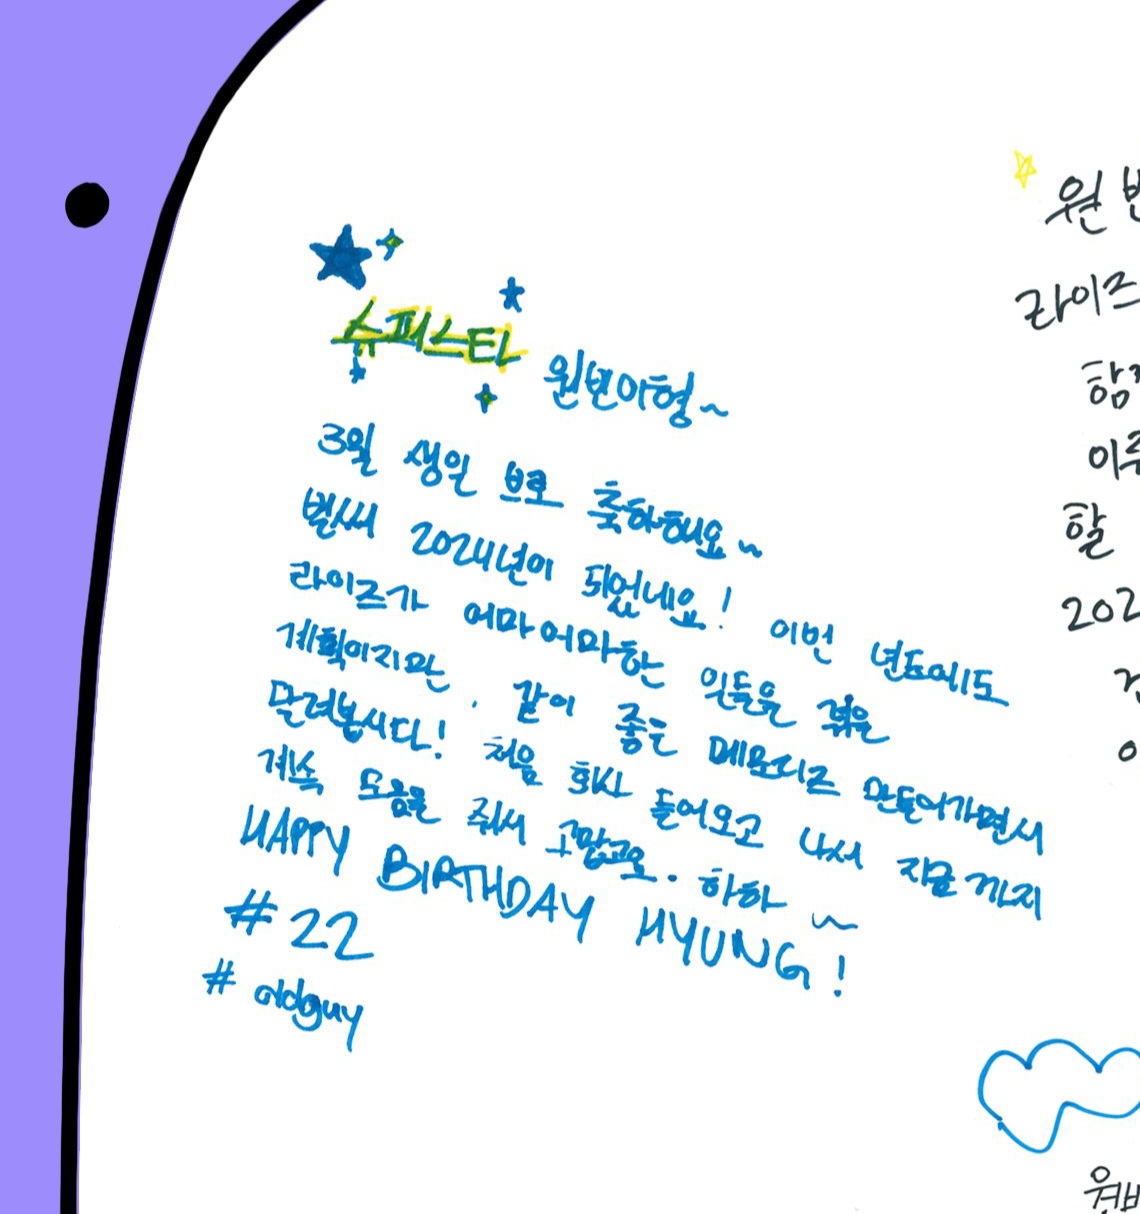 슈퍼스타 원빈이형~
3월 생일 브로 축하해요~
벌써 2024년이 되었네요! 이번 년도에도
라이즈가 어마어마한 일들을 겪을
계획이지만, 같이 좋은 메모리즈 만들어가면서
달려봅시다! 처음 회사 들어오고 나서 지금까지
계속 도움을 줘서 고맙고요. 하하~
HAPPY BIRTHDAY HYUNG!
#22
#oldguy
원
라이즈
이루
할
202
원